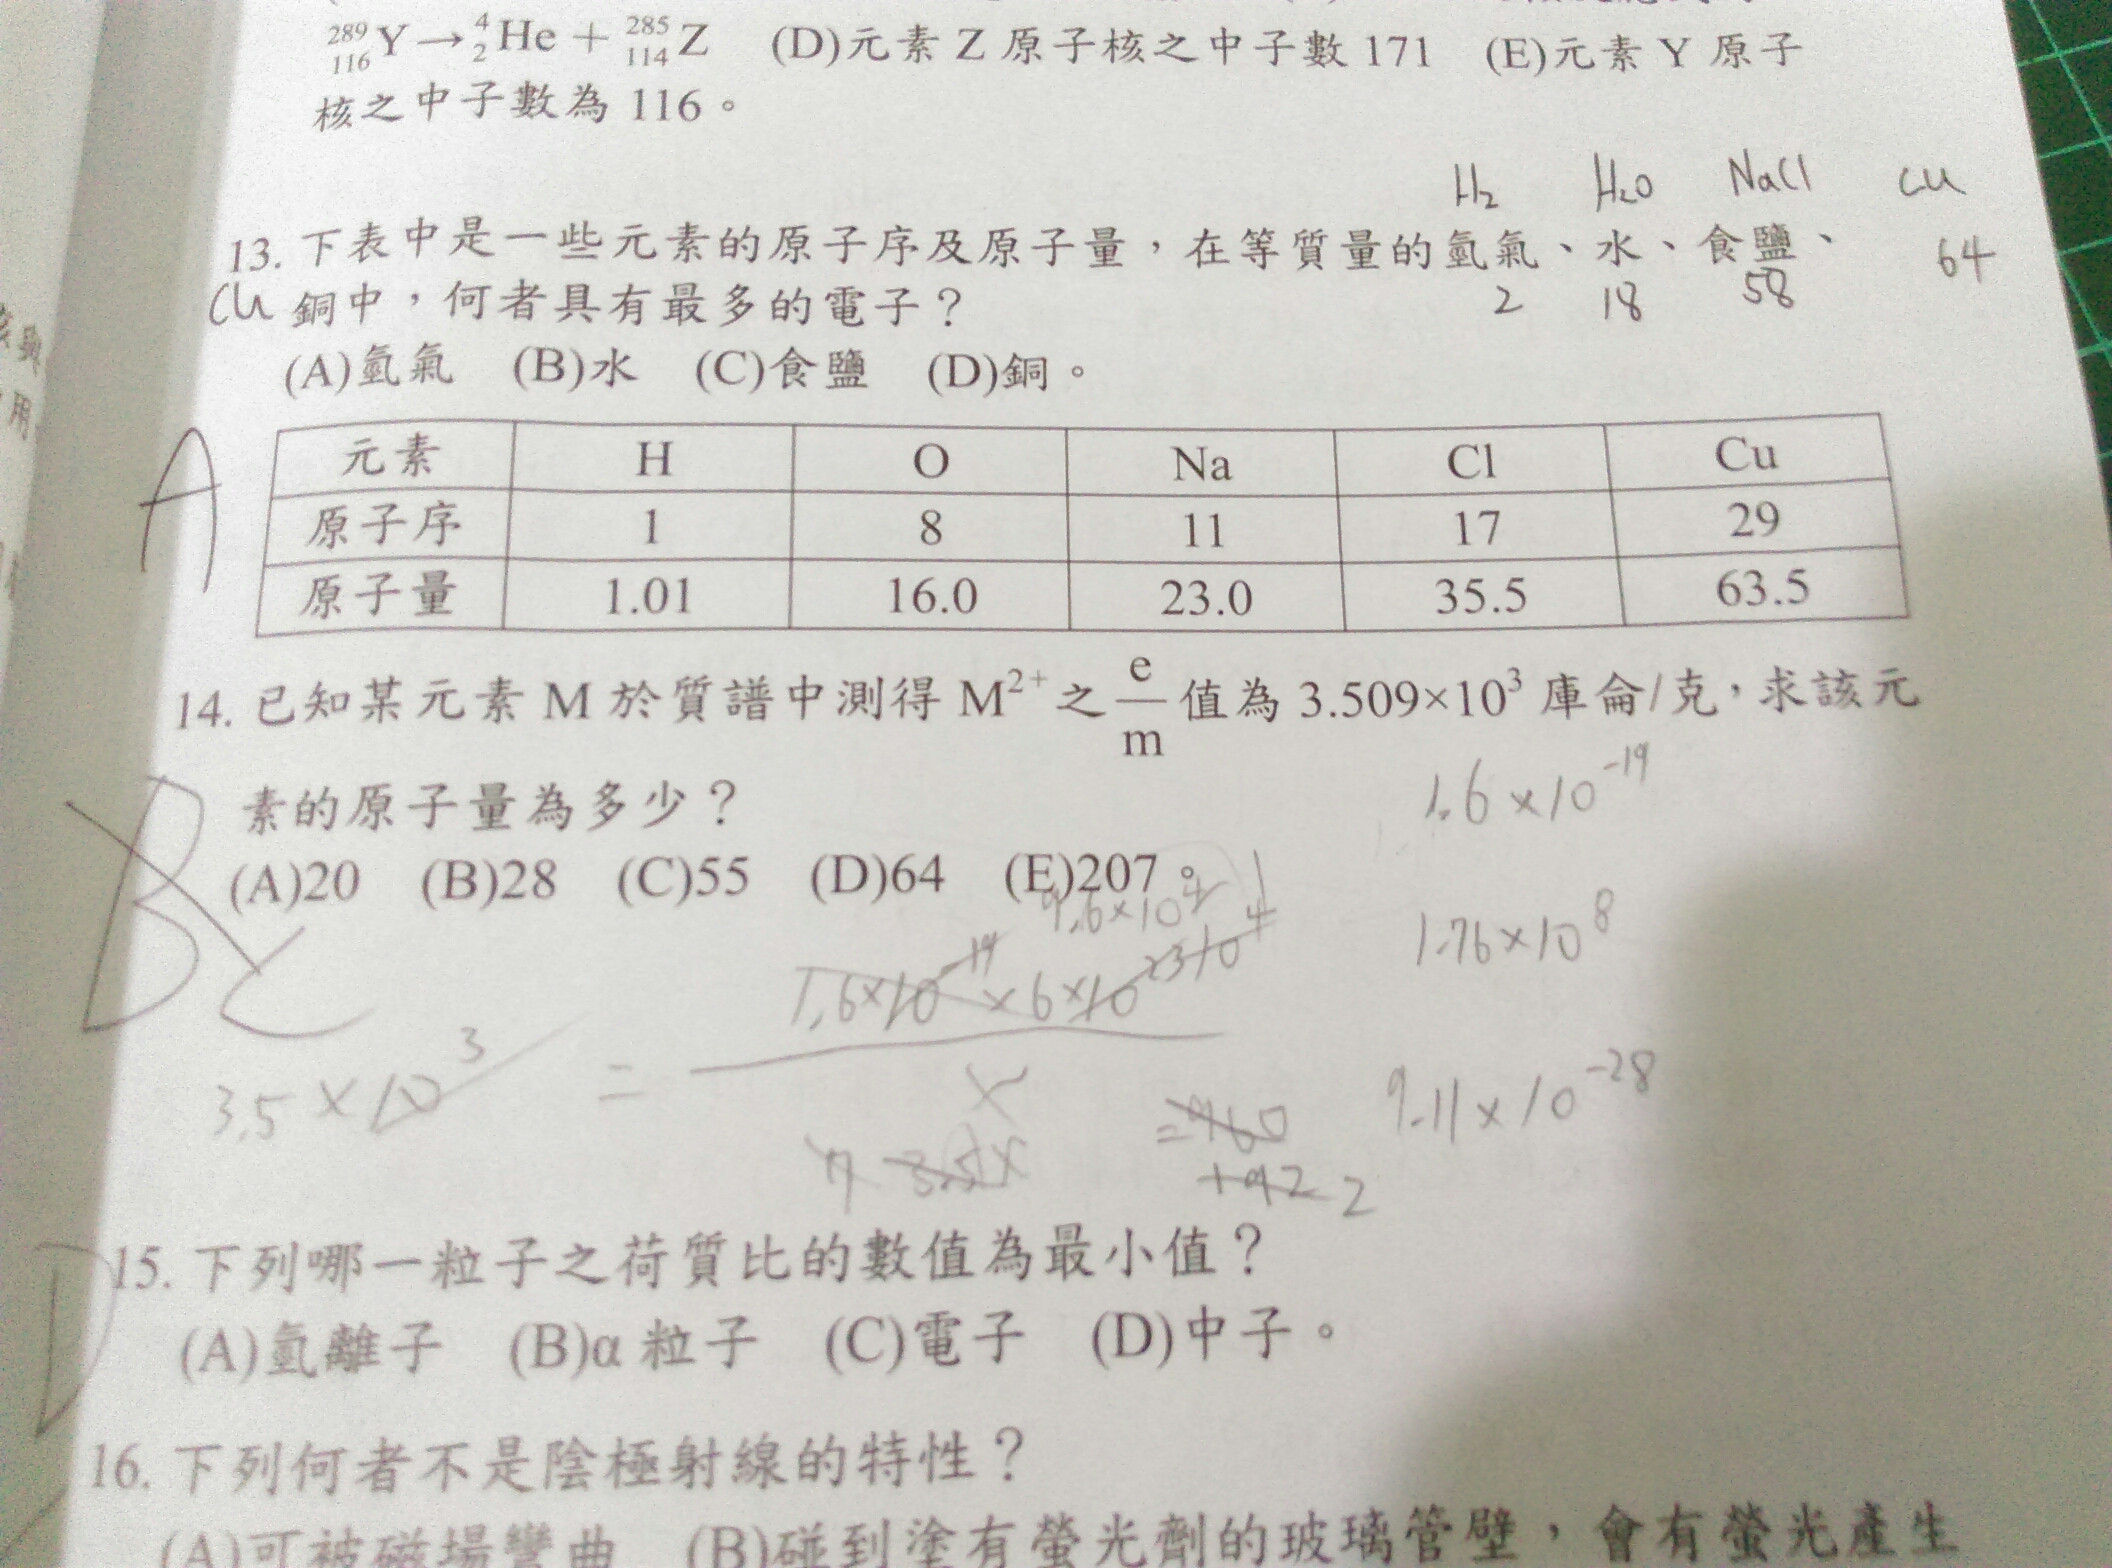 ²⁸⁹₁₁₆Y→⁴₂He + ²⁸⁵₁₁₄Z (D)元素 Z 原子核之中子數 171 (E)元素 Y 原子
核之中子數為 116。
H₂ H₂O NaCl Cu
13. 下表中是一些元素的原子序及原子量，在等質量的氫氣、水、食鹽、
2 18 58 64
Cu 銅中，何者具有最多的電子？
(A)氫氣 (B)水 (C)食鹽 (D)銅。
A
元素 H O Na Cl Cu
原子序 1 8 11 17 29
原子量 1.01 16.0 23.0 35.5 63.5
14. 已知某元素 M 於質譜中測得 M²⁺ 之 e/m 值為 3.509×10³ 庫侖/克，求該元
素的原子量為多少？
1.6×10⁻¹⁹
B
(A)20 (B)28 (C)55 (D)64 (E)207。
9.6×10⁴
1.76×10⁸
C
1.6×10⁻¹⁹×6×10²³
3.5×10³ =
x
9.11×10⁻²⁸
=960
2
D
15. 下列哪一粒子之荷質比的數值為最小值？
(A)氫離子 (B)α 粒子 (C)電子 (D)中子。
16. 下列何者不是陰極射線的特性？
(A)可被磁場彎曲 (B)碰到塗有螢光劑的玻璃管壁，會有螢光產生